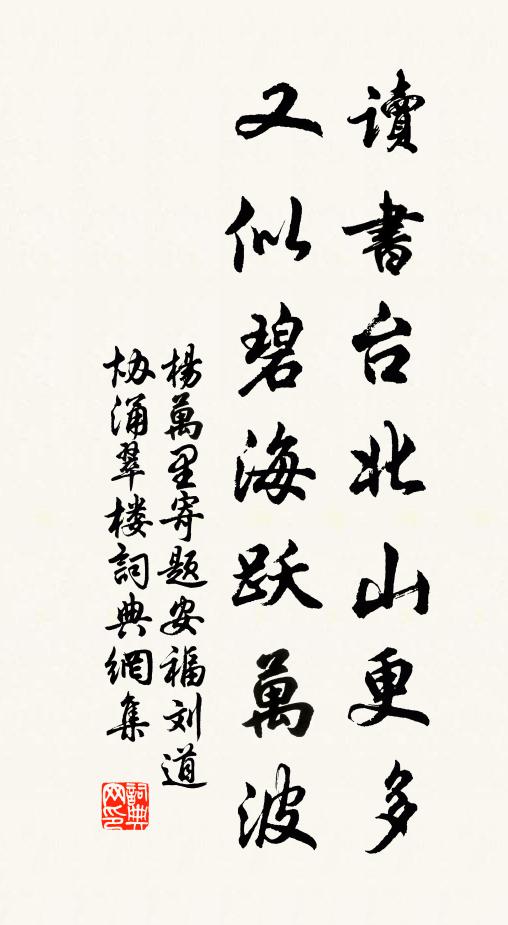 讀書台北山更多
又似碧海跃萬波
楊萬里寄題安福刘道
协涌翠楼詞典網集
詞典网印